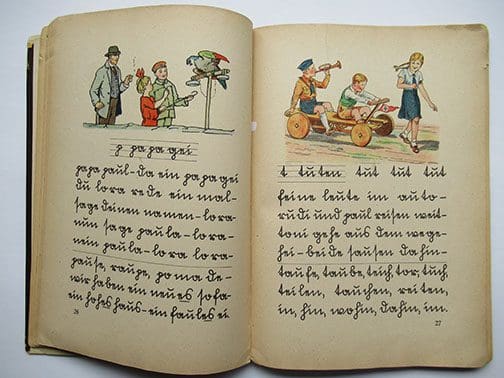 p pa pa gei
pa pa paul-da ein pa pa gei
du lora re de ein mal-
sage deinen namen-lora-
nun sage paula-lora-
nein paula-lora lora-
pause, raupe, po ma de-
wir haben ein neues sofa-
ein hohes haus-ein faules ei
26
t tuten tut tut tut
feine leute im auto-
rudi und paul reisen weit-
toni gehe aus dem wege-
hei-beide sausen dahin-
taufe, taube, teich, tor, tuch,
teilen, tauchen, reiten,
in, hin, wohin, dahin, im.
27